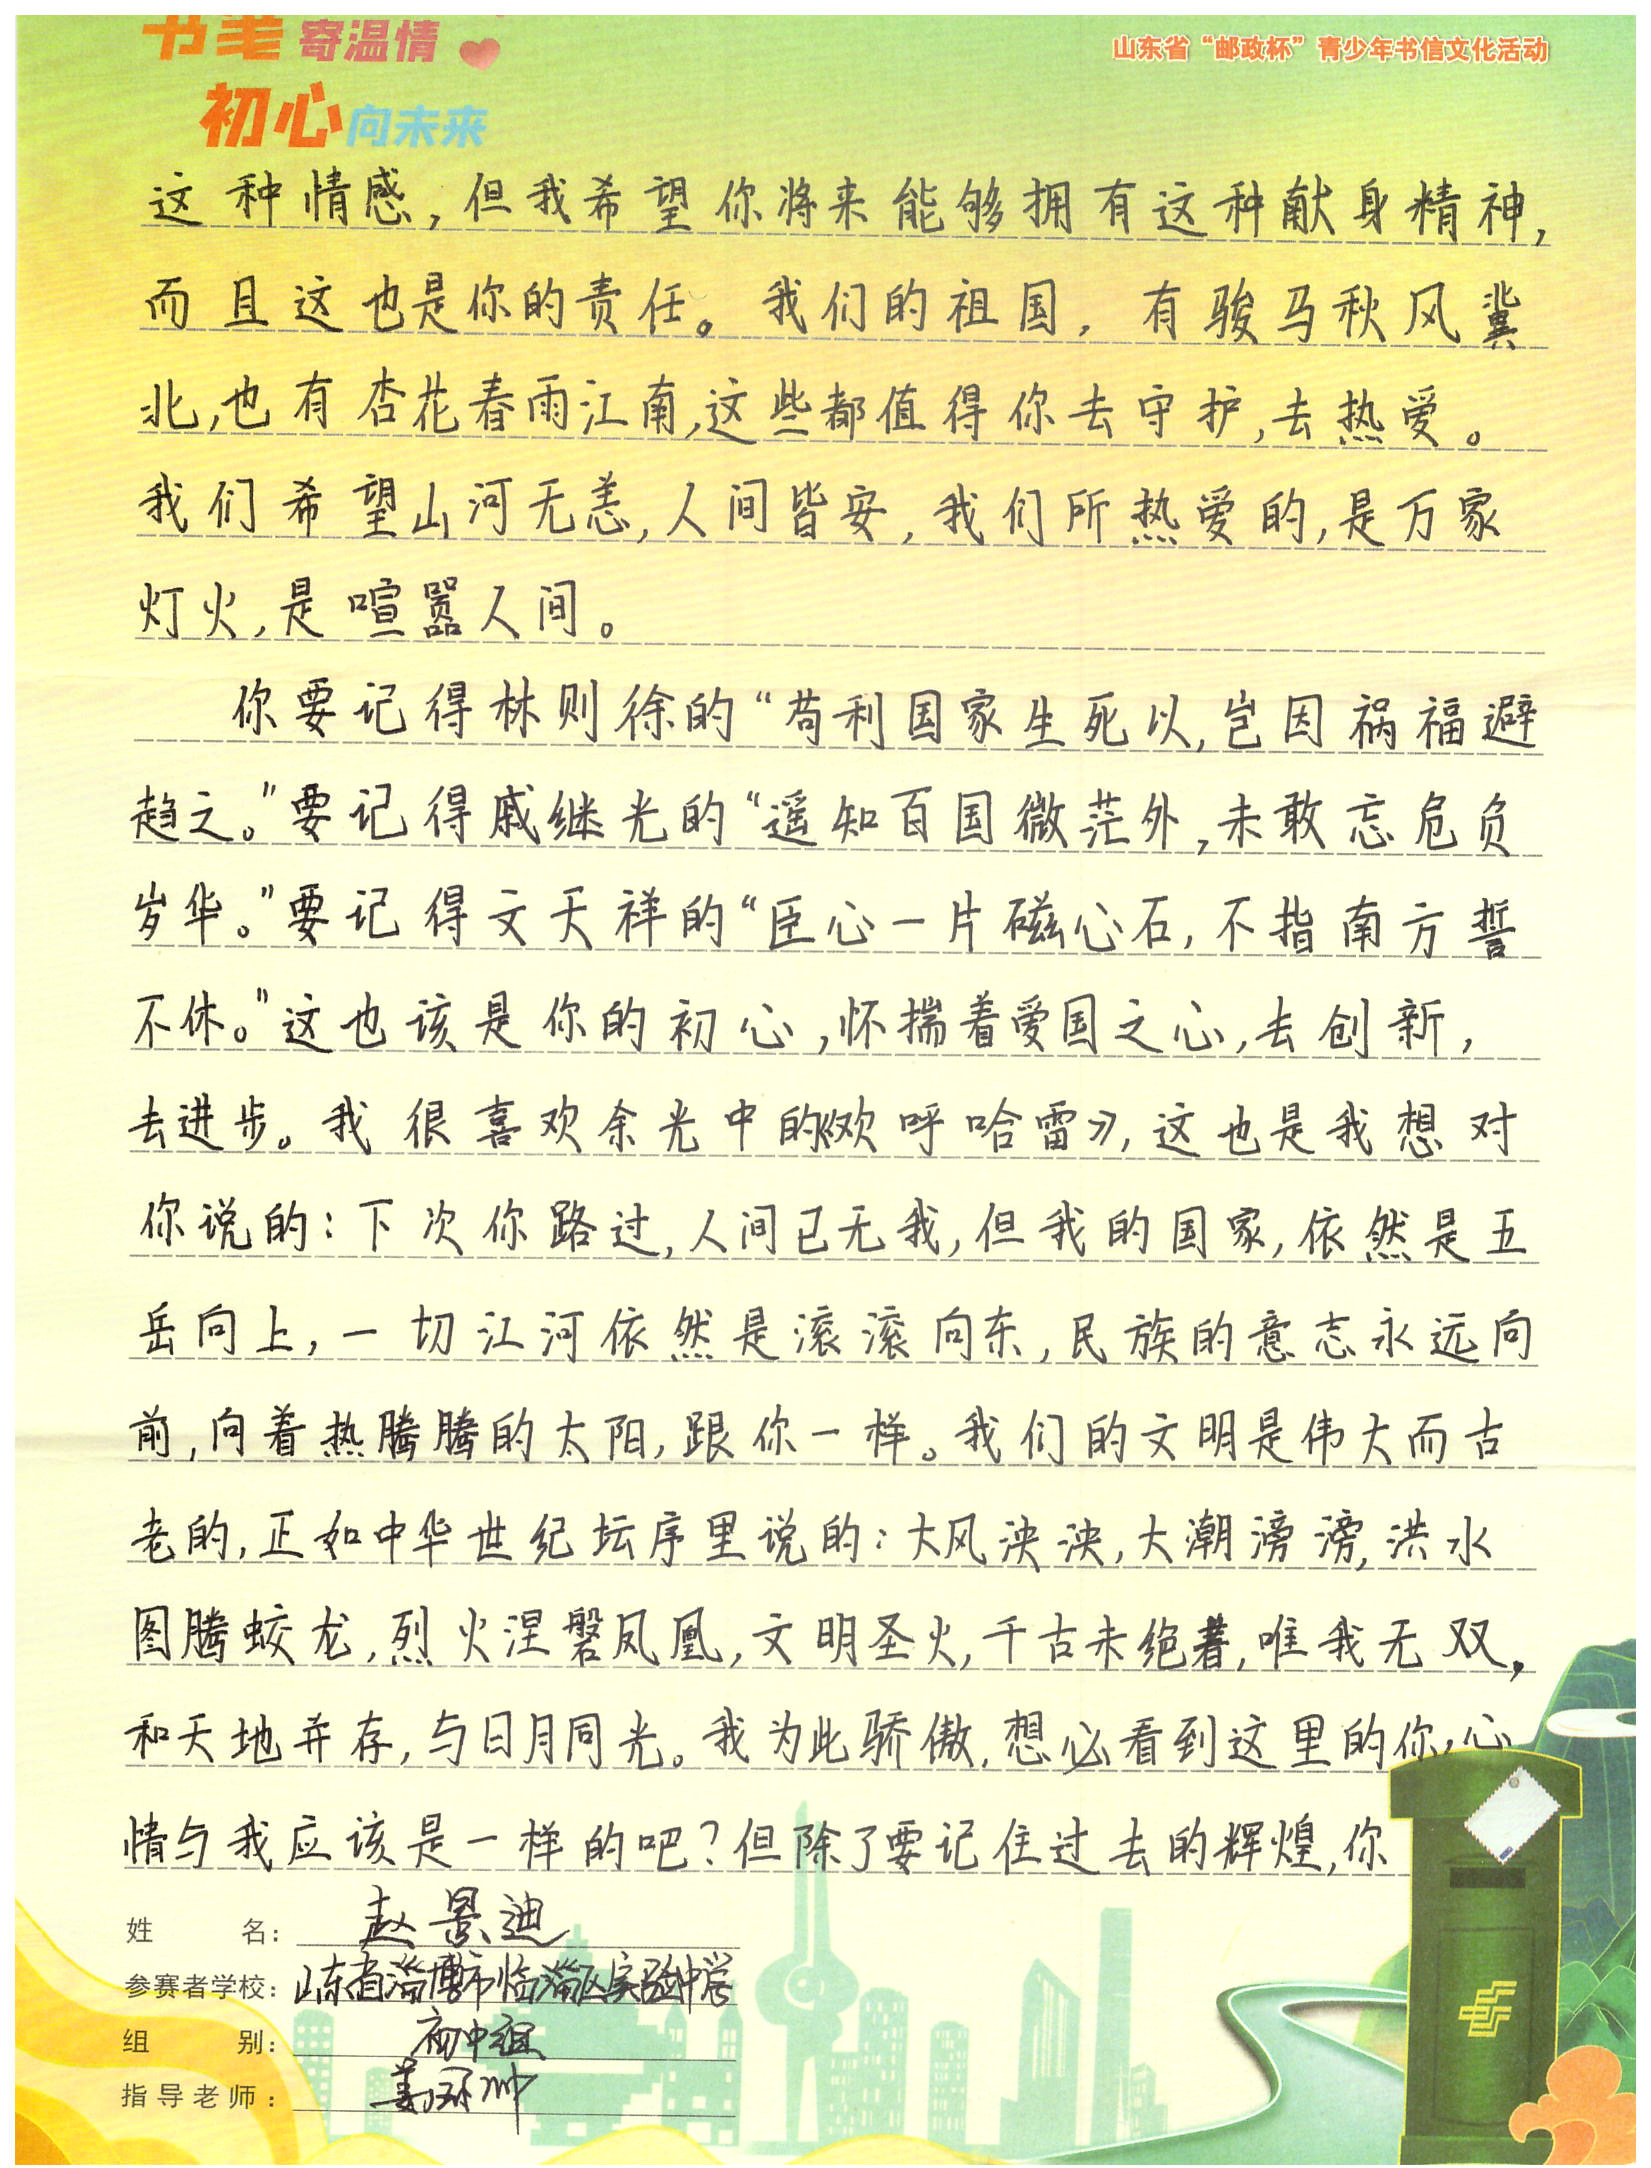 书笔寄温情
山东省“邮政杯”青少年书信文化活动
初心向未来
这种情感,但我希望你将来能够拥有这种献身精神,
而且这也是你的责任。我们的祖国,有骏马秋风冀
北,也有杏花春雨江南,这些都值得你去守护,去热爱。
我们希望山河无恙,人间皆安,我们所热爱的,是万家
灯火,是喧嚣人间。
你要记得林则徐的“苟利国家生死以,岂因祸福避
趋之。”要记得戚继光的“遥知百国微茫外,未敢忘危负
岁华。”要记得文天祥的“臣心一片磁心石,不指南方誓
不休。”这也该是你的初心,怀揣着爱国之心,去创新,
去进步。我很喜欢余光中的《欢呼哈雷》,这也是我想对
你说的:下次你路过,人间已无我,但我的国家,依然是五
岳向上,一切江河依然是滚滚向东,民族的意志永远向
前,向着热腾腾的太阳,跟你一样。我们的文明是伟大而古
老的,正如中华世纪坛序里说的:大风泱泱,大潮滂滂,洪水
图腾蛟龙,烈火涅磐凤凰,文明圣火,千古未绝著,唯我无双,
和天地并存,与日月同光。我为此骄傲,想必看到这里的你,心
情与我应该是一样的吧?但除了要记住过去的辉煌,你
姓名: 赵景迪
参赛者学校: 山东省淄博市临淄区实验中学
组别: 初中组
指导老师: